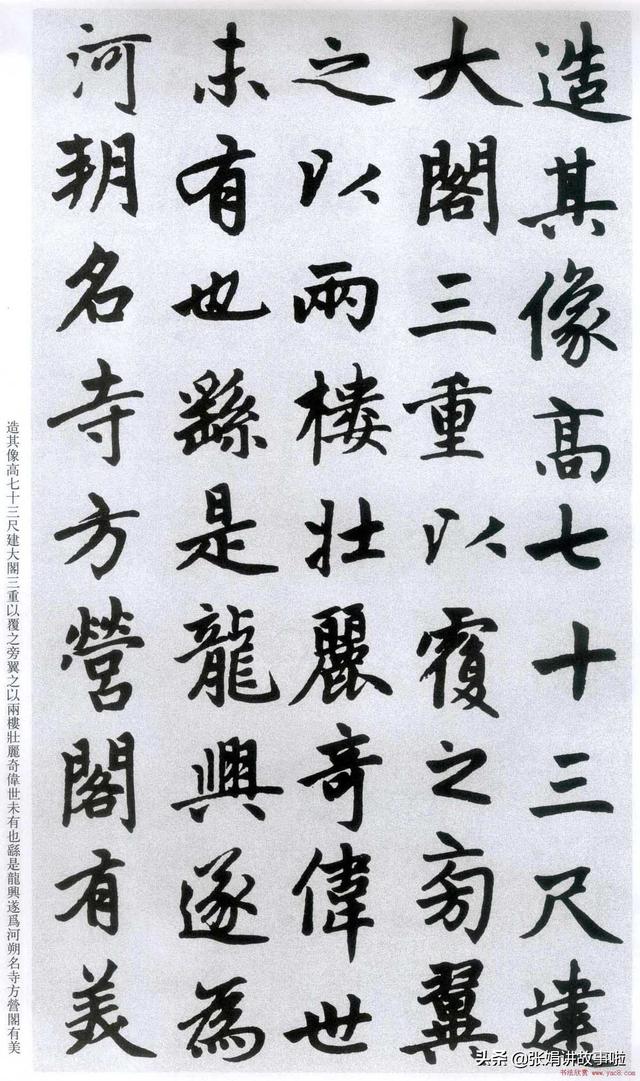 造其像高七十三尺建
大閣三重以覆之旁翼
之以兩樓壯麗奇偉世
未有也繇是龍興遂為
河朔名寺方營閣有美
造其像高七十三尺建大閣三重以覆之旁翼之以兩樓壯麗奇偉世未有也繇是龍興遂爲河朔名寺方營閣有美
头条 @张娟讲故事啦
书法欣赏 www.yac8.com